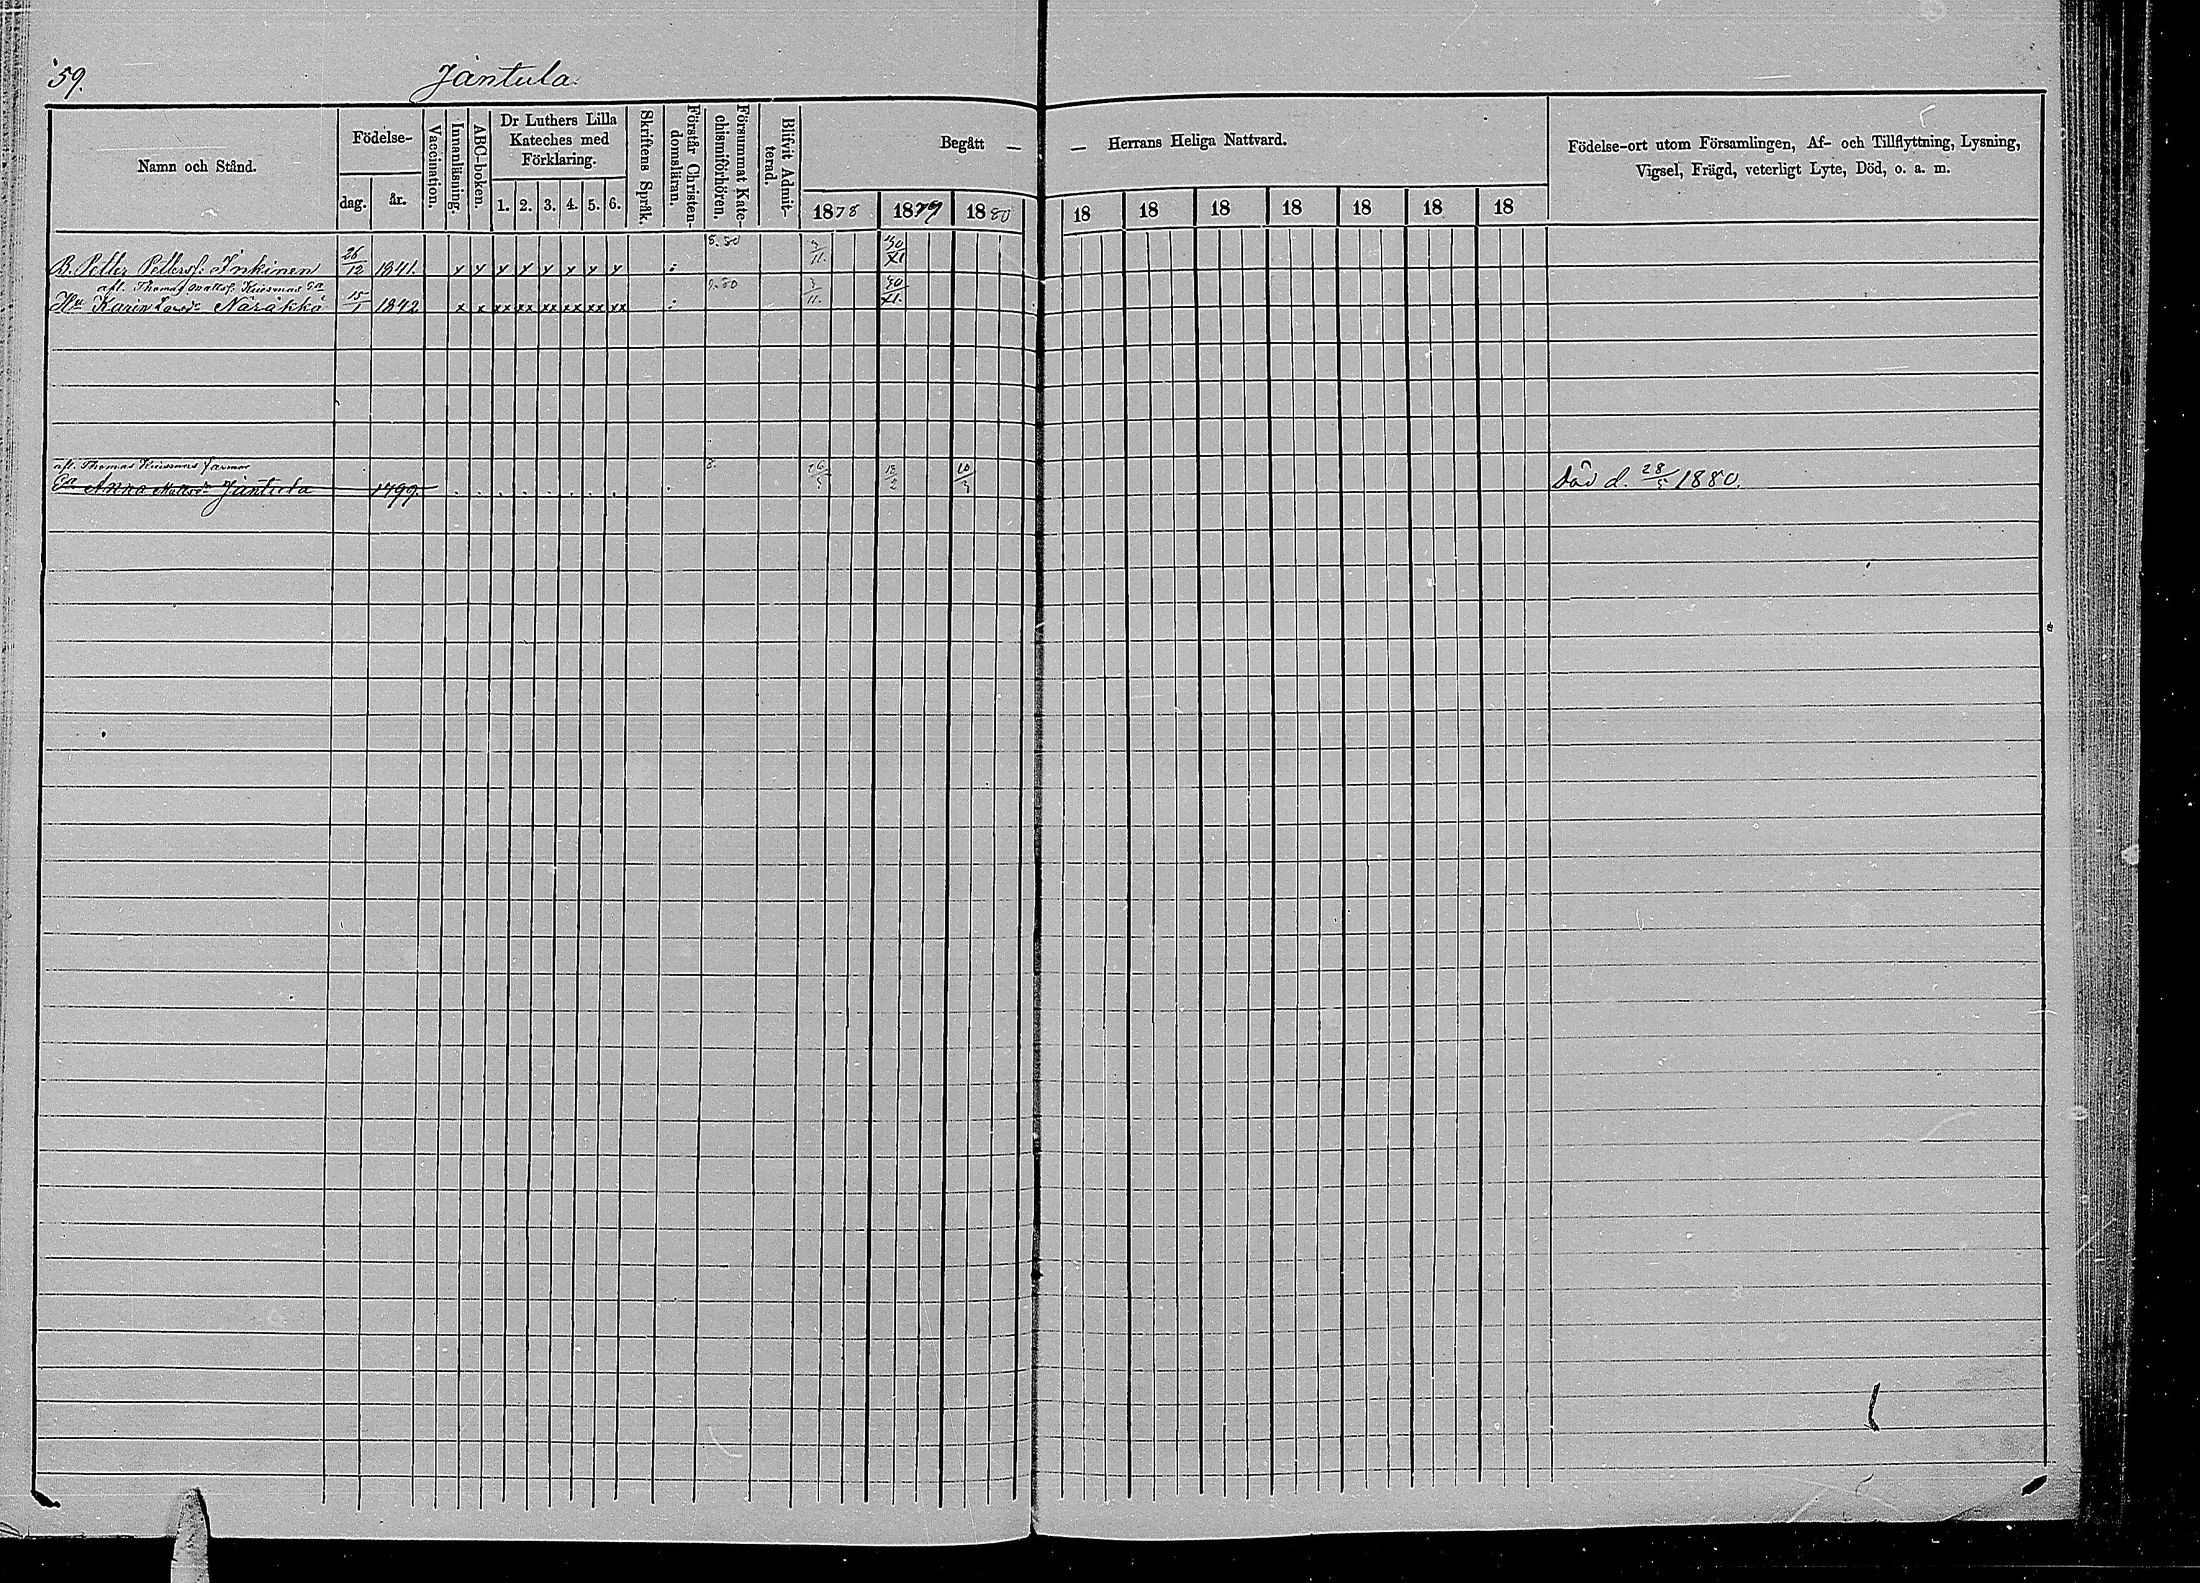 59. Jäntula.
Namn och Stånd.
Födelse-
dag. år.
Vaccination.
Innanläsning.
ABC-boken.
Dr Luthers Lilla
Kateches med
Förklaring.
1. 2. 3. 4. 5. 6.
Skriftens Språk.
Förstår Christen-
domsläran.
Försummat Kate-
chismiförhören.
Blifvit Admit-
terad.
Begått — — Herrans Heliga Nattvard.
1878 1879 1880 18 18 18 18 18 18 18
Födelse-ort utom Församlingen, Af- och Tillflyttning, Lysning,
Vigsel, Frägd, veterligt Lyte, Död, o. a. m.
B. Petter Pettersf: Inkinen 26/12 1841. 30/XI
afl. Thomas Mattsf:
Hu Karin Larsdr Näräkkä 15/1 1842 30/XI.
afl. Thomas farmor
Ea Anna Mattsdr Jäntula 1799. 10/3 Död d. 28/5 1880.